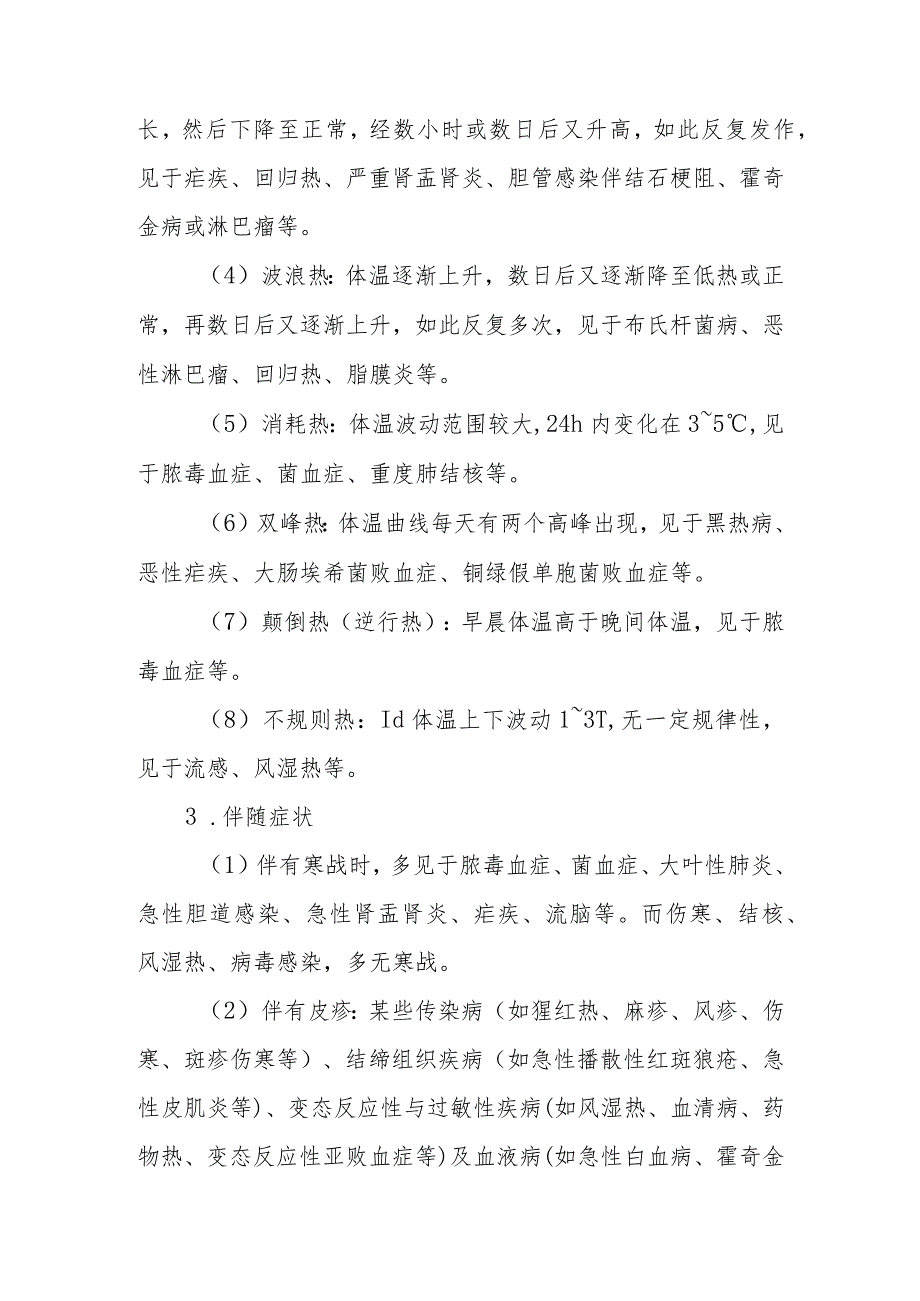 长，然后下降至正常，经数小时或数日后又升高，如此反复发作，
见于疟疾、回归热、严重肾盂肾炎、胆管感染伴结石梗阻、霍奇
金病或淋巴瘤等。
（4）波浪热：体温逐渐上升，数日后又逐渐降至低热或正
常，再数日后又逐渐上升，如此反复多次，见于布氏杆菌病、恶
性淋巴瘤、回归热、脂膜炎等。
（5）消耗热：体温波动范围较大,24h 内变化在 3~5℃,见
于脓毒血症、菌血症、重度肺结核等。
（6）双峰热：体温曲线每天有两个高峰出现，见于黑热病、
恶性疟疾、大肠埃希菌败血症、铜绿假单胞菌败血症等。
（7）颠倒热（逆行热）：早晨体温高于晚间体温，见于脓
毒血症等。
（8）不规则热：Id 体温上下波动 1~3T,无一定规律性，
见于流感、风湿热等。
3 .伴随症状
（1）伴有寒战时，多见于脓毒血症、菌血症、大叶性肺炎、
急性胆道感染、急性肾盂肾炎、疟疾、流脑等。而伤寒、结核、
风湿热、病毒感染，多无寒战。
（2）伴有皮疹：某些传染病（如猩红热、麻疹、风疹、伤
寒、斑疹伤寒等）、结缔组织疾病（如急性播散性红斑狼疮、急
性皮肌炎等)、变态反应性与过敏性疾病(如风湿热、血清病、药
物热、变态反应性亚败血症等)及血液病(如急性白血病、霍奇金